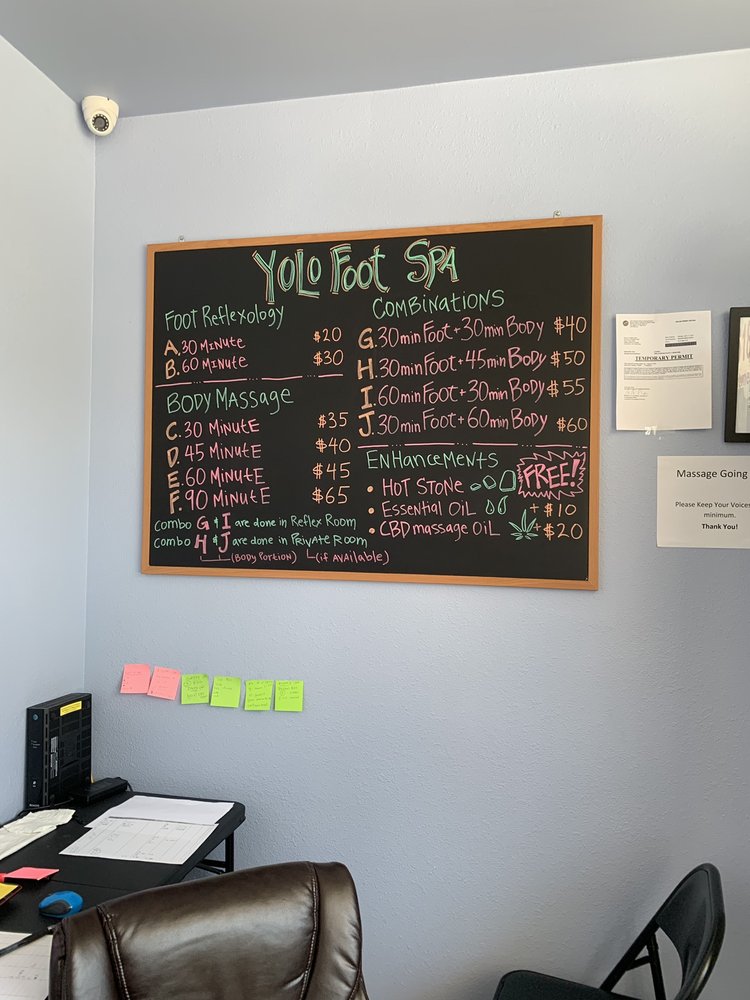 YOLO FOOT SPA
FOOT Reflexology
A. 30 MINUTE $20
B. 60 MINUTE $30
BODY MASSAGE
C. 30 MINUTE $35
D. 45 MINUTE $40
E. 60 MINUTE $45
F. 90 MINUTE $65
COMBO G & I are done in Reflex Room
COMBO H & J are done in PRIVATE ROOM
(BODY PORTION) (if AVAilable)
COMBINATIONS
G. 30min Foot + 30min BODY $40
H. 30min Foot + 45min BODY $50
I. 60min Foot + 30min BODY $55
J. 30min Foot + 60min BODY $60
ENHANCEMENTS
• HOT STONE FREE!
• Essential OIL + $10
• CBD massage OIL + $20
TEMPORARY PERMIT
Massage Going
Please Keep Your Voices
minimum.
Thank You!